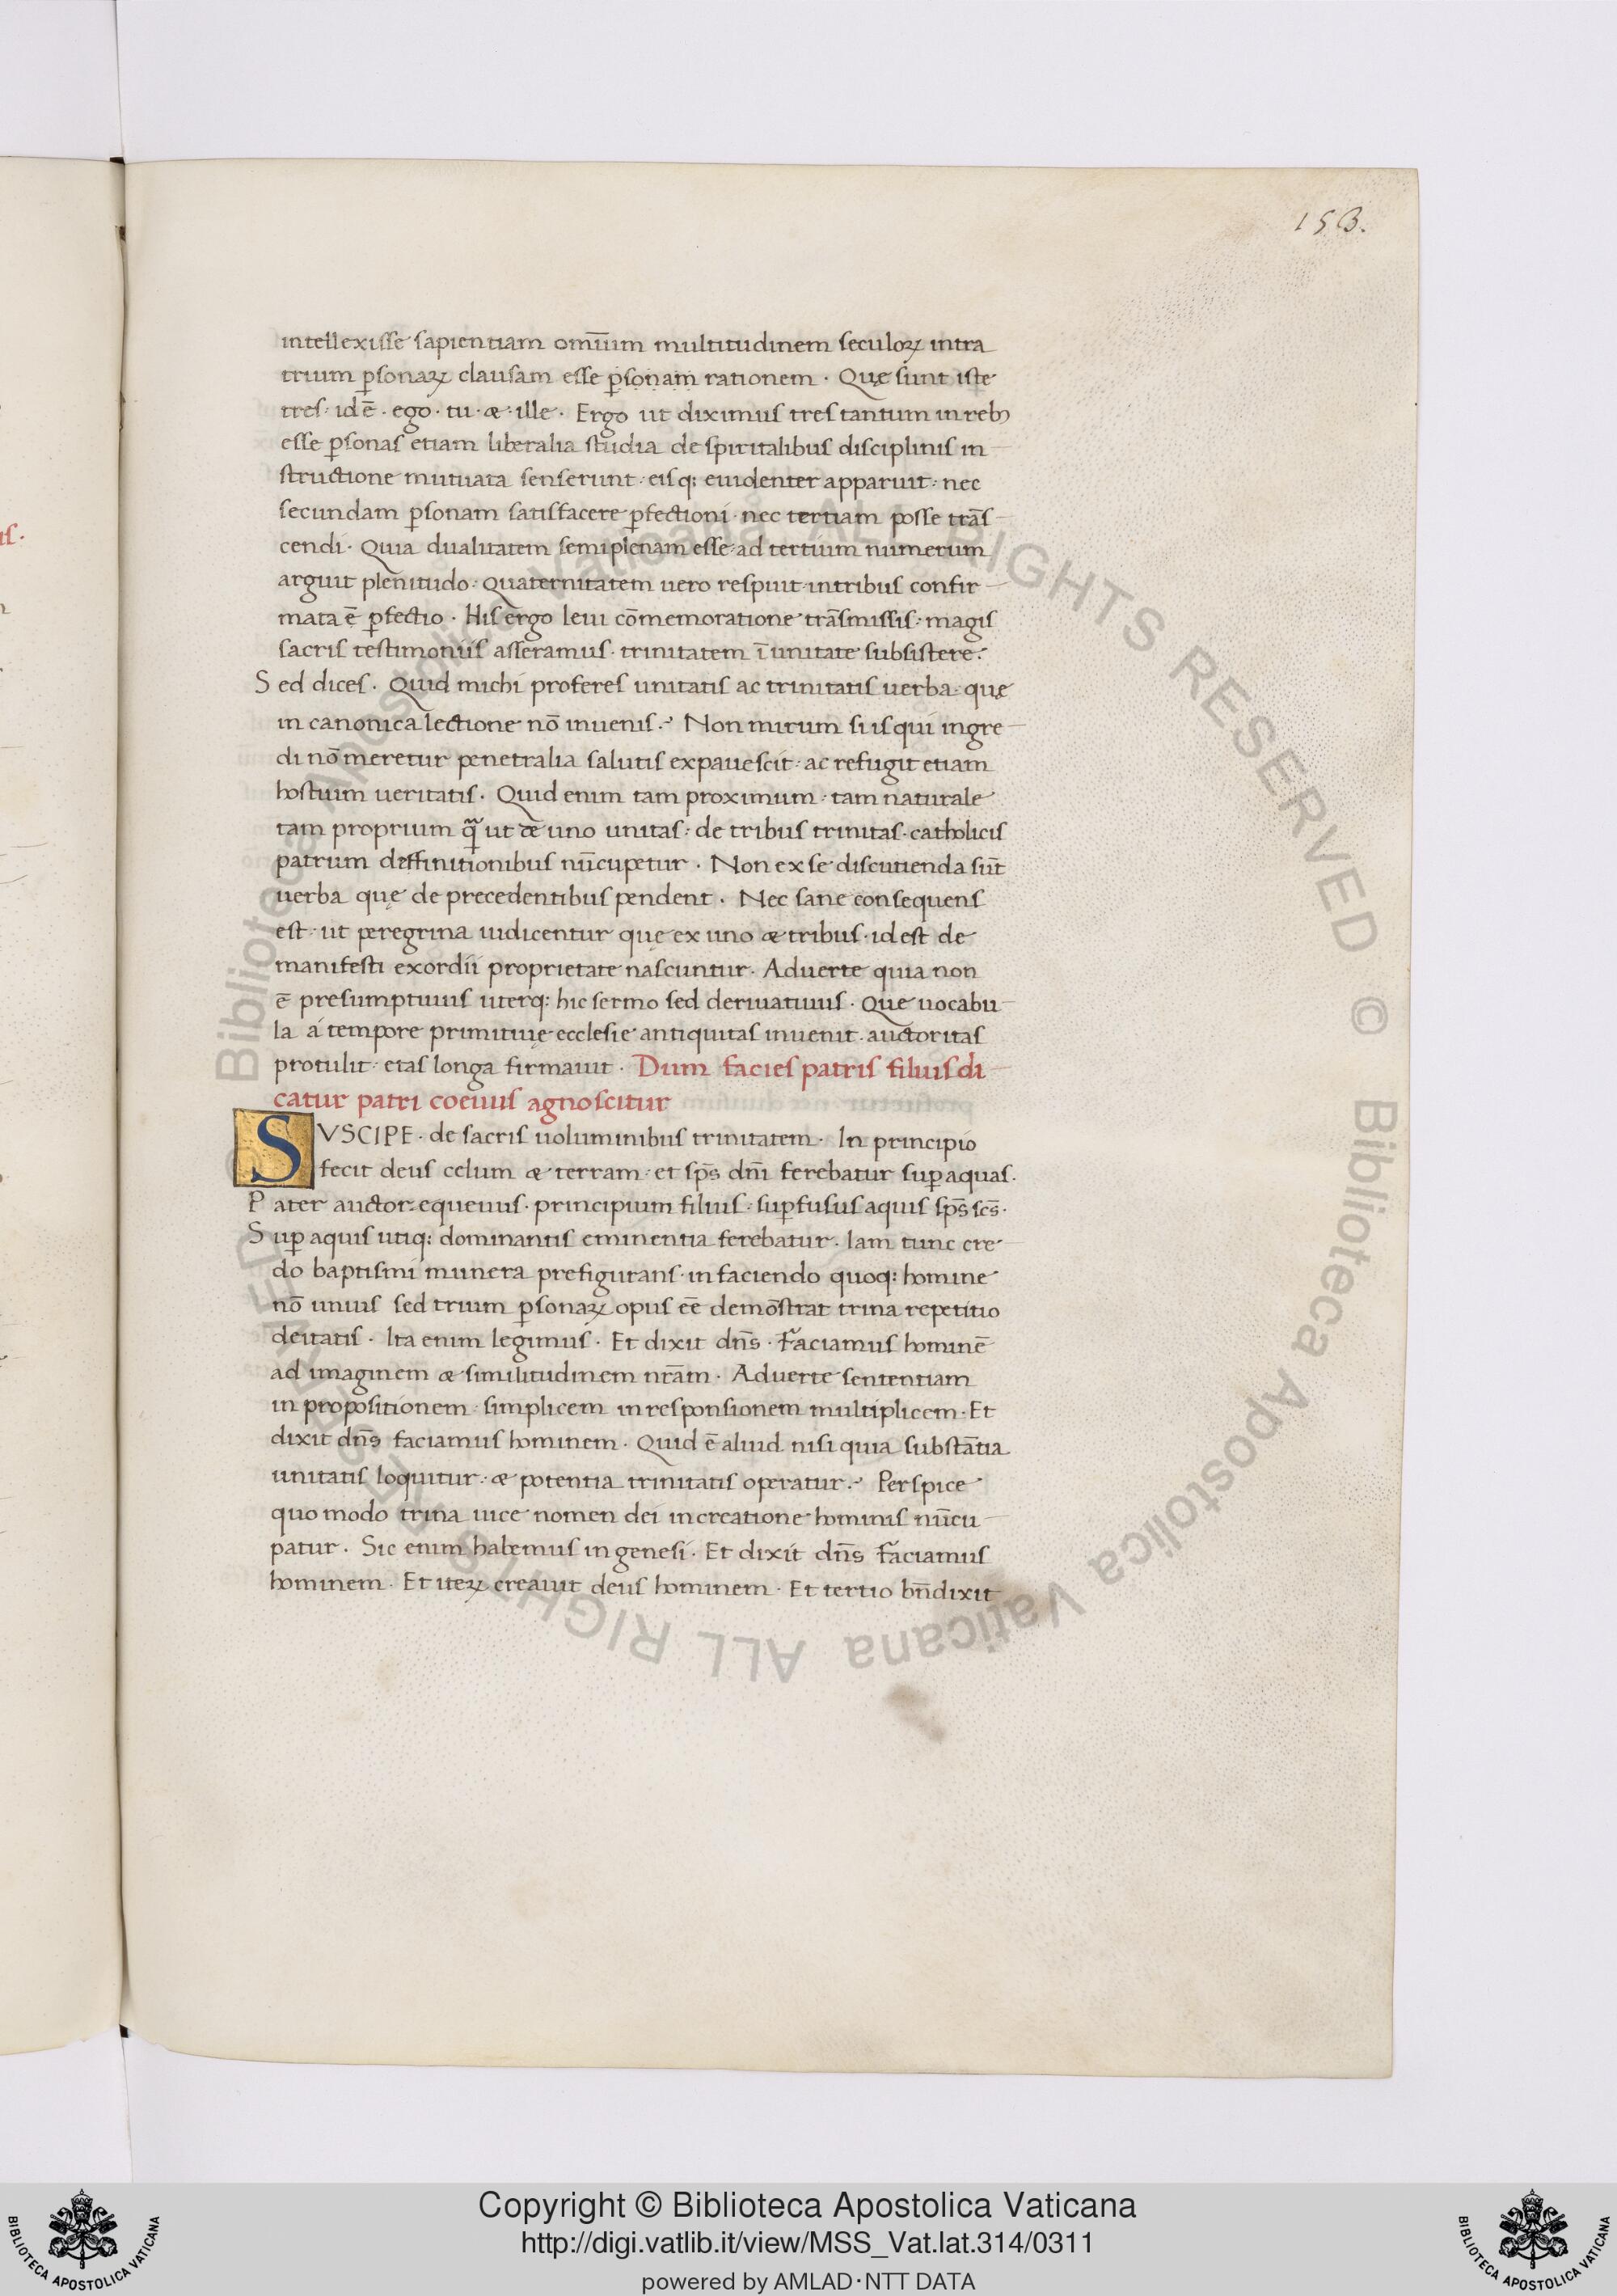 153.
intellexisse sapientiam omīum multitudinem seculoꝝ intra
trium ꝑsonaꝝ clausam esse ꝑsonam rationem · Quę sunt iste
tres · id ē · ego · tu · & · ille · Ergo ut diximus tres tantum in rebꝰ
esse ꝑsonas etiam liberalia studia de spiritalibus disciplinis in
structione mutuata senserunt · eisq; euidenter apparuit · nec
secundam ꝑsonam satisfacere ꝑfectioni · nec tertiam posse trās
cendi · Quia dualitatem semiplenam esse · ad tertium numerum
arguit plenitudo · Quaternitatem uero respuit · in tribus confir
mata ē ꝑfectio · His ergo leui cōmemoratione trāsmissis · magis
sacris testimoniis asseramus · trinitatem ī unitate subsistere ·
Sed dices · Quid michi proferes unitatis ac trinitatis uerba · quę
in canonica lectione nō inuenis ? Non mirum si is qui ingre
di nō meretur penetralia salutis expauescit · ac refugit etiam
hostium ueritatis · Quid enim tam proximum · tam naturale
tam proprium quā ut de uno unitas · de tribus trinitas · catholicis
patrum diffinitionibus nūcupetur · Non ex se discutienda sūt
uerba quę de precedentibus pendent · Nec sane consequens
est · ut peregrina iudicentur quę ex uno & tribus · id est de
manifesti exordii proprietate nascuntur · Aduerte quia non
ē presumptiuus uterq; hic sermo sed deriuatiuus · Que uocabu
la á tempore primitiuę ecclesie antiquitas inuenit · auctoritas
protulit · etas longa firmauit · Dum facies patris filius di
catur patri coeuus agnoscitur
SVSCIPE · de sacris uoluminibus trinitatem · In principio
fecit deus celum & terram · et sp̄s dn̄i ferebatur suꝑ aquas ·
Pater auctor equeuus · principium filius · suꝑfusus aquis sp̄s sc̄s ·
Suꝑ aquis utiq; dominantis eminentia ferebatur · Iam tunc cre
do baptismi munera prefigurans · in faciendo quoq; homine
nō unius sed trium ꝑsonaꝝ opus eē demōstrat trina repetitio
deitatis · Ita enim legimus · Et dixit dn̄s · Faciamus hominē
ad imaginem & similitudinem nr̄am · Aduerte sententiam
in propositionem simplicem in responsionem multiplicem · Et
dixit dn̄s faciamus hominem · Quid ē aliud nisi quia substātia
unitatis loquitur · & potentia trinitatis operatur ? Perspice
quo modo trina uice nomen dei in creatione hominis nūcu
patur · Sic enim habemus in genesi · Et dixit dn̄s faciamus
hominem · Et iteꝝ creauit deus hominem · Et tertio bn̄dixit
© Biblioteca Apostolica Vaticana ALL RIGHTS RESERVED
© Biblioteca Apostolica Vaticana ALL RIGHTS RESERVED
Copyright © Biblioteca Apostolica Vaticana
http://digi.vatlib.it/view/MSS_Vat.lat.314/0311
powered by AMLAD·NTT DATA
BIBLIOTECA APOSTOLICA VATICANA
BIBLIOTECA APOSTOLICA VATICANA